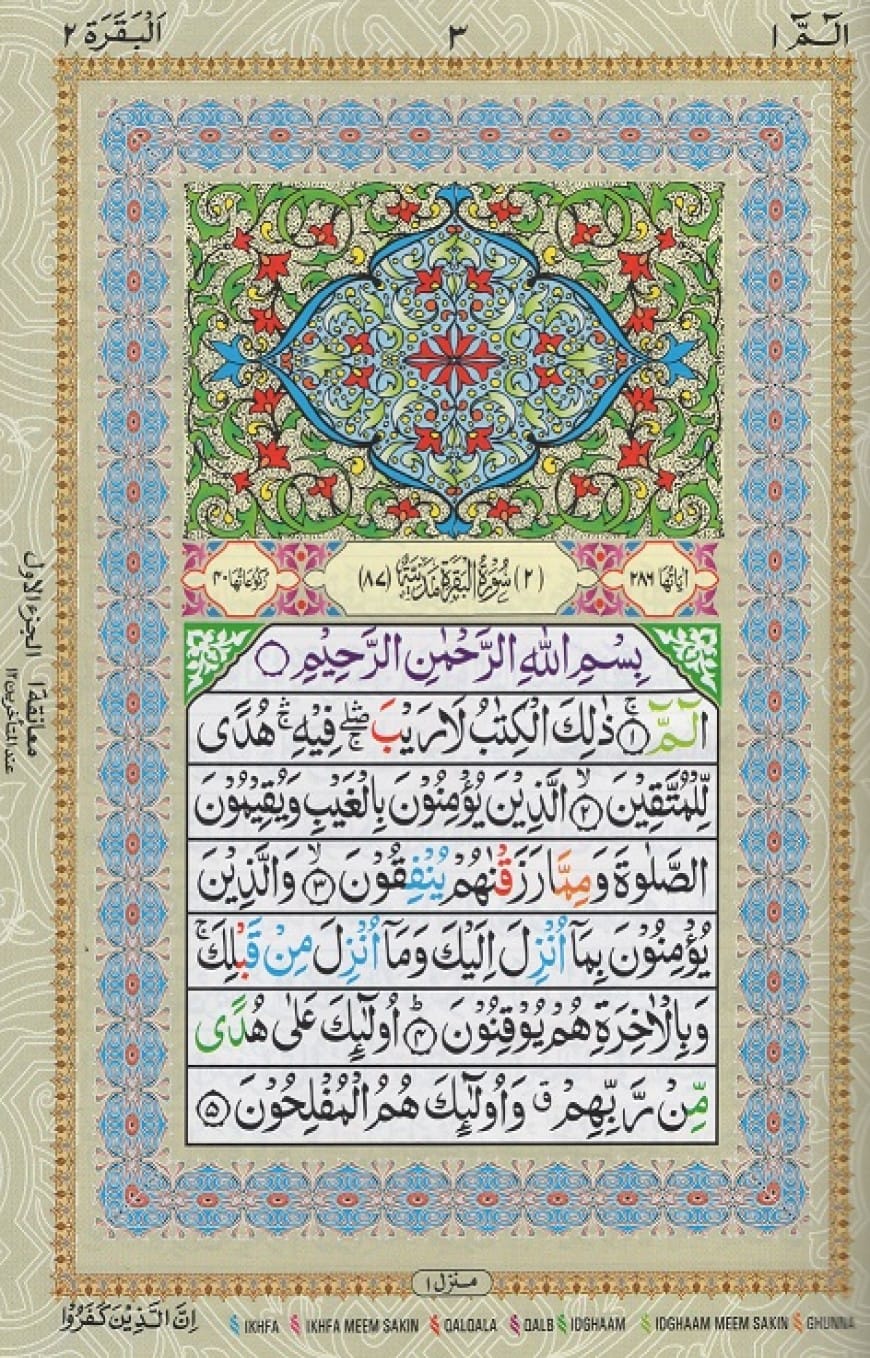 الٓـمّٓ ١
٣
اَلْبَقَرَة ٢
اٰيَاتُهَا ٢٨٦
(٢) سُوْرَةُ الْبَقَرَةِ مَدَنِيَّةٌ (٨٧)
رُكُوْعَاتُهَا ٤٠
بِسْمِ اللّٰهِ الرَّحْمٰنِ الرَّحِيْمِ ۝
الٓـمّٓ ۝١ۚ ذٰلِكَ الْكِتٰبُ لَا رَيْبَ ۛۖۚ فِيْهِ ۛۚ هُدًى
لِّلْمُتَّقِيْنَ ۝٢ۙ الَّذِيْنَ يُؤْمِنُوْنَ بِالْغَيْبِ وَيُقِيْمُوْنَ
الصَّلٰوةَ وَمِمَّا رَزَقْنٰهُمْ يُنْفِقُوْنَ ۝٣ۙ وَالَّذِيْنَ
يُؤْمِنُوْنَ بِمَآ اُنْزِلَ اِلَيْكَ وَمَآ اُنْزِلَ مِنْ قَبْلِكَ ۚ
وَبِالْاٰخِرَةِ هُمْ يُوْقِنُوْنَ ۝٤ؕ اُولٰٓئِكَ عَلٰى هُدًى
مِّنْ رَّبِّهِمْ ۗ وَاُولٰٓئِكَ هُمُ الْمُفْلِحُوْنَ ۝٥
الجزء الاول
معانقة ١
عند المتأخرين ١٢
منزل ١
اِنَّ الَّذِيْنَ كَفَرُوْا
IKHFA IKHFA MEEM SAKIN QALQALA QALB IDGHAAM IDGHAAM MEEM SAKIN GHUNNA